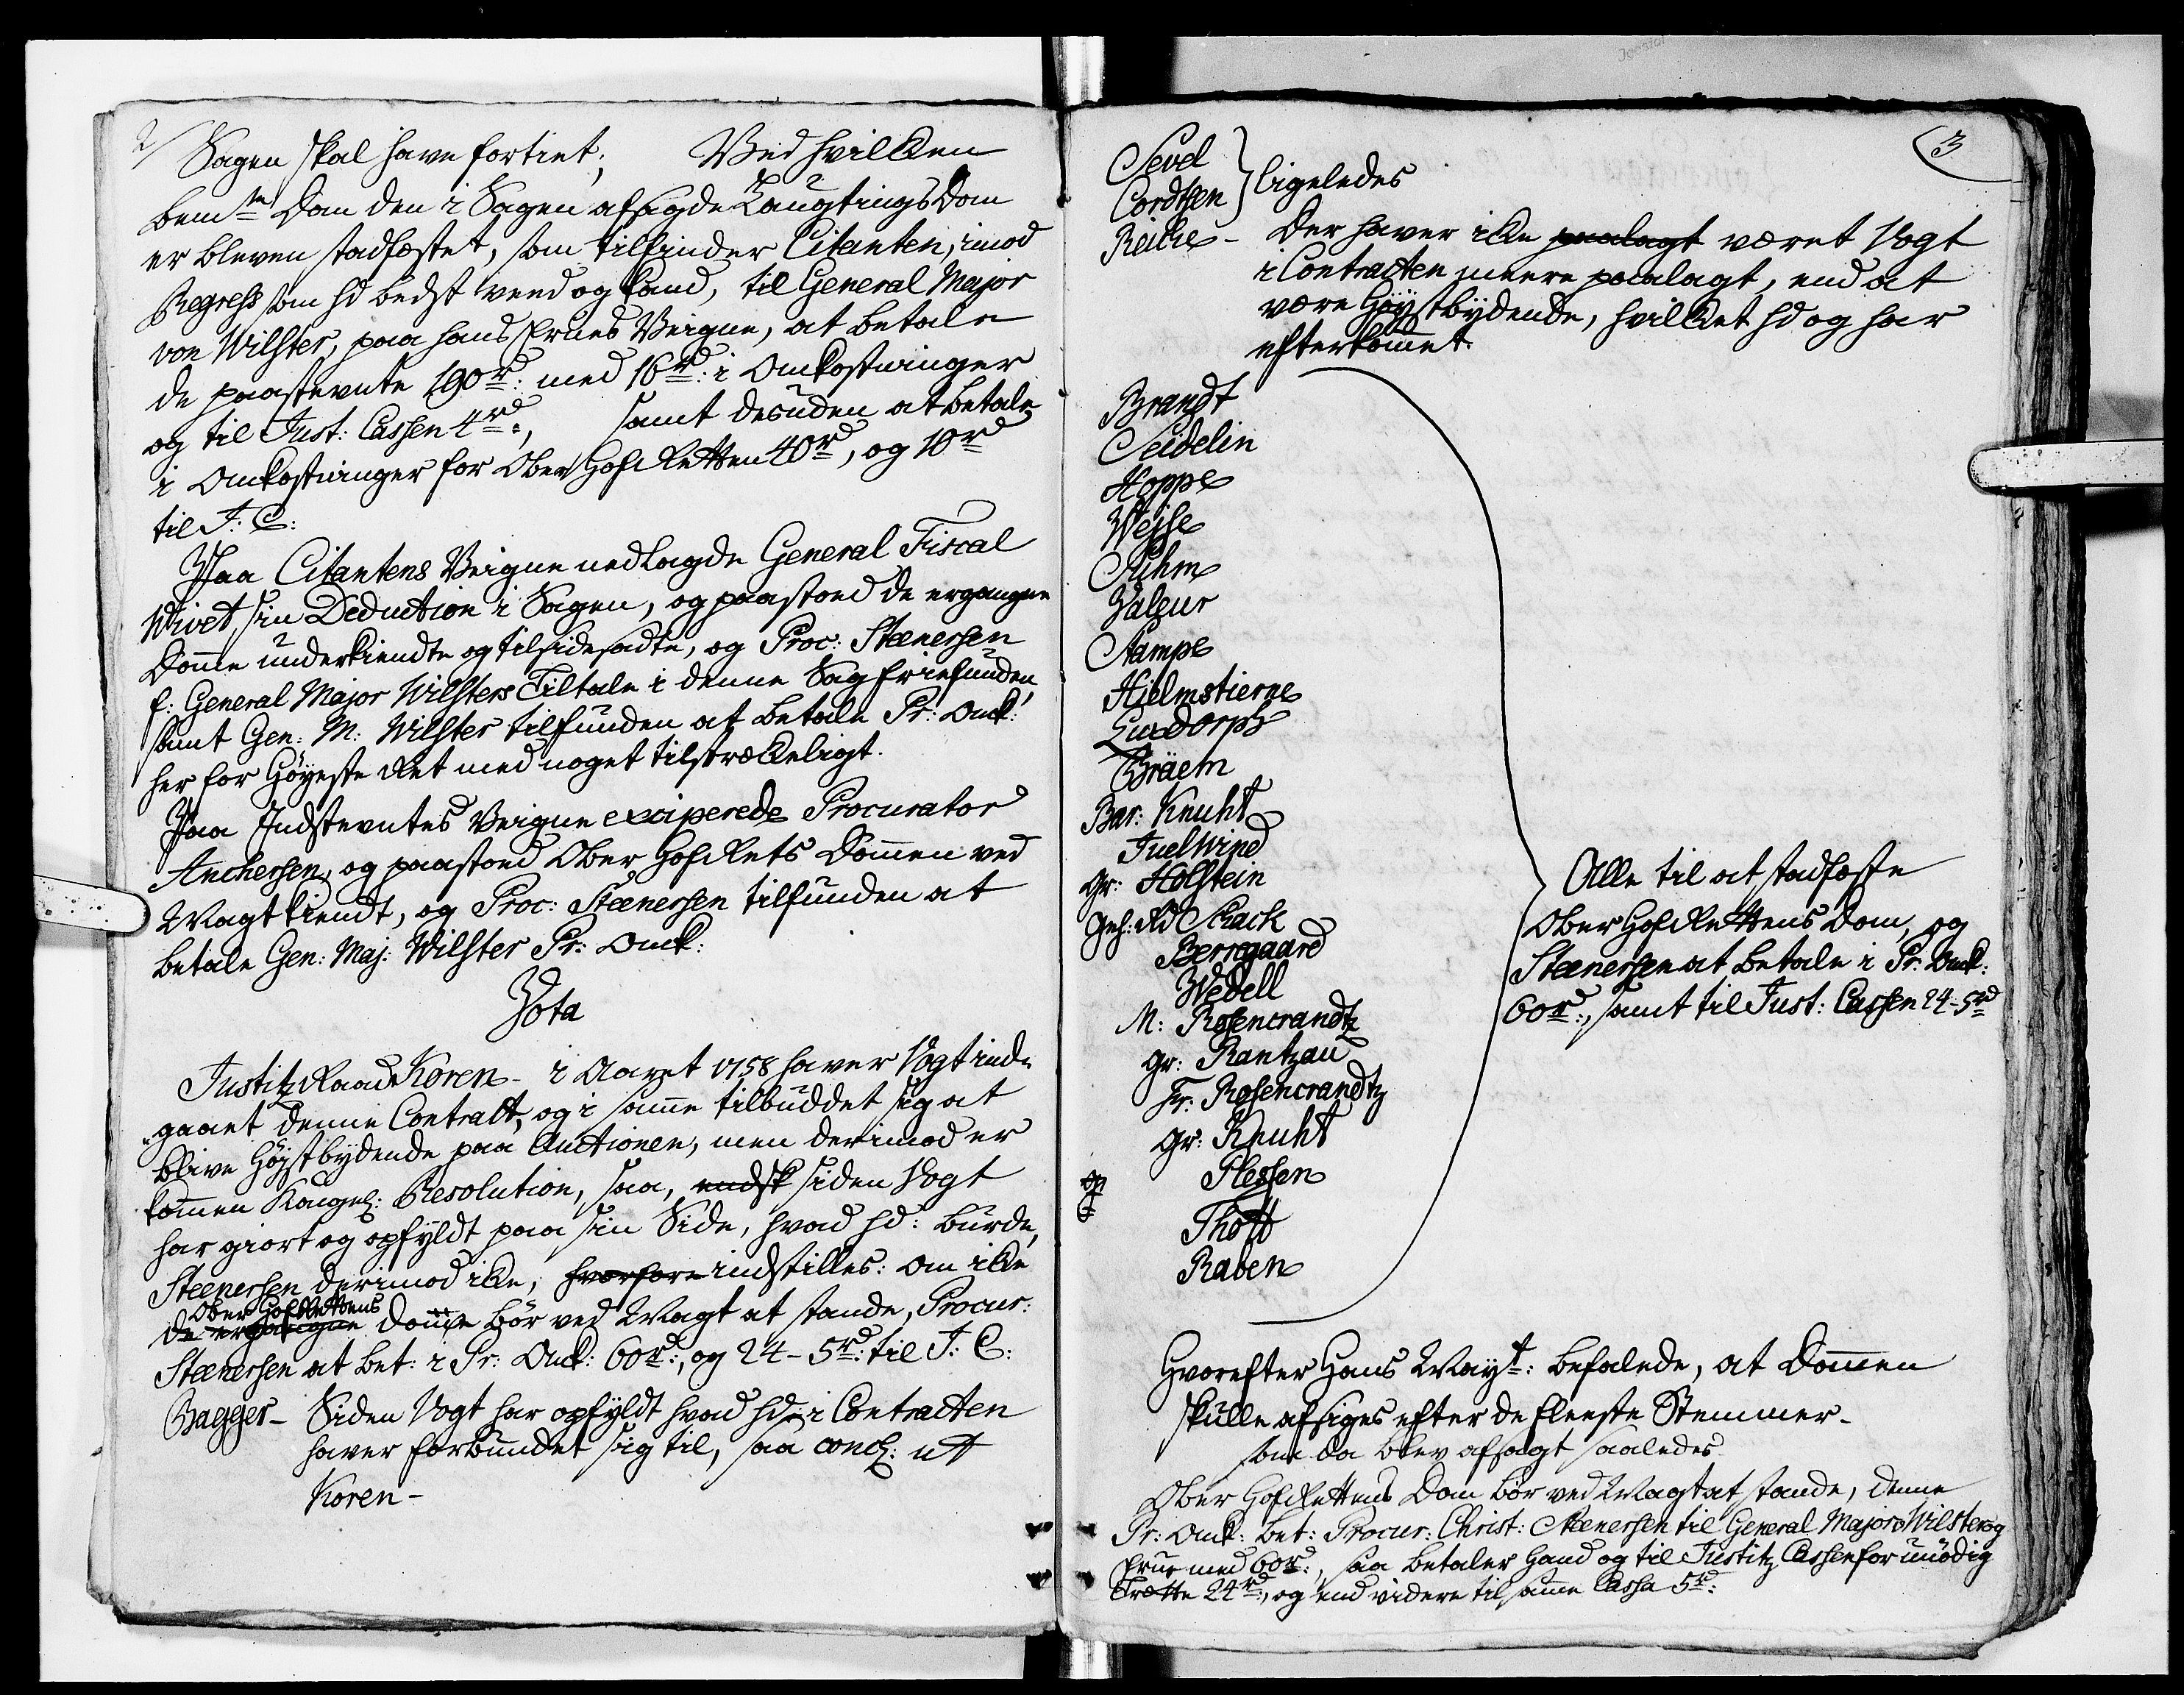 2/
Sagen skal have fortient; Ved hvilken
bem.te Dom den i Sagen afsagde LaugtingsDom
er bleven stadfæstet, som tilfinder Citanten, imod
Regress som hd bedst veed og kand, til General Major
von Wilster, paa hans Frues Veigne, at betale
de paastevnte 190rd: med 16rd: i Omkostninger
og til Just: Cassen 4rd:, samt desuden at betale
i Omkostninger for Ober Hof Retten 40rd, og 10rd
til J: C:
Paa Citantens Veigne nedlagde General Fiscal
Wivet sin Deduction i Sagen, og paastoed de ergangne
Domme underkiendte og tilsidesadte, og Proc: Steenersen
f: General Major Wilsters Tiltale i denne Sag friefunden,
samt Gen: M: Wilster tilfunden at betale Pr: Omk:
her for Høyeste Ret med noget tilstrækkeligt.
Paa Indstevntes Veigne exciperede Procurator
Anchersen, og paastoed Ober Hof Rets Dommen ved
Magt kiendt, og Proc: Steenersen tilfunden at
betale Gen: Maj: Wilster Pr: Omk:
Vota
Justitz Raad Koren - i Aaret 1758 haver Vogt ind-
gaaet denne Contract, og i samme tilbuddet sig at
blive Høystbydende paa Auctionen, men derimod er
kommen Kongel: Resolution, saa, endsk siden Vogt
har giort og opfyldt paa sin Side, hvad hd: burde,
Steenersen derimod ikke, hvorfore indstilles: om ikke
Ober Hof Rettens
de ergangne Domme bør ved Magt at stande, Procur:
Steenersen at bet: i Pr: Omk: 60rd:, og 24 - 5rd: til J: C:
Bagger - Siden Vogt har opfyldt hvad hd, i Contracten
haver forbundet sig til, saa concl: ut
Koren -
3
Sevel
Cordtsen } ligeledes
Reiche - Der haver ikke paalagt været Vogt
i Contracten meere paalagt, end at
være Høystbydende, hvilket hd og har
efterkommet.
Brandt
Seidelin
Hoppe
Wejse
Suhm
Valeur
Stampe
Hielmstierne
Luxdorph
Bräem
Bar: Knuht
Juel Wind
Gr: Holstein
Geh: Rd Schack
Berregaard
Wedell
M: Rosencrandtz
Gr: Rantzau
Fr: Rosencrandtz
Gr: Knuht
Plessen
Thott
Raben
Alle til at stadfæste
Ober Hof Rettens Dom, og
Steenersen at betale i Pr: Omk:
60rd:, samt til Just: Cassen 24 - 5rd
Hvorefter Hans Mayt: befalede, at Dommen
skulle afsiges efter de fleeste Stemmer -
som da blev afsagt saaledes
Ober Hof Rettens Dom bør ved Magt at stande, denne
Pr: Omk: bet: Procur: Christ: Steenersen til General Major Wilster og
Frue med 60rd:, saa betaler Hand og til Justitz Cassen for unødig
Trætte 24rd:, og end videre til samme Cassa 5rd: